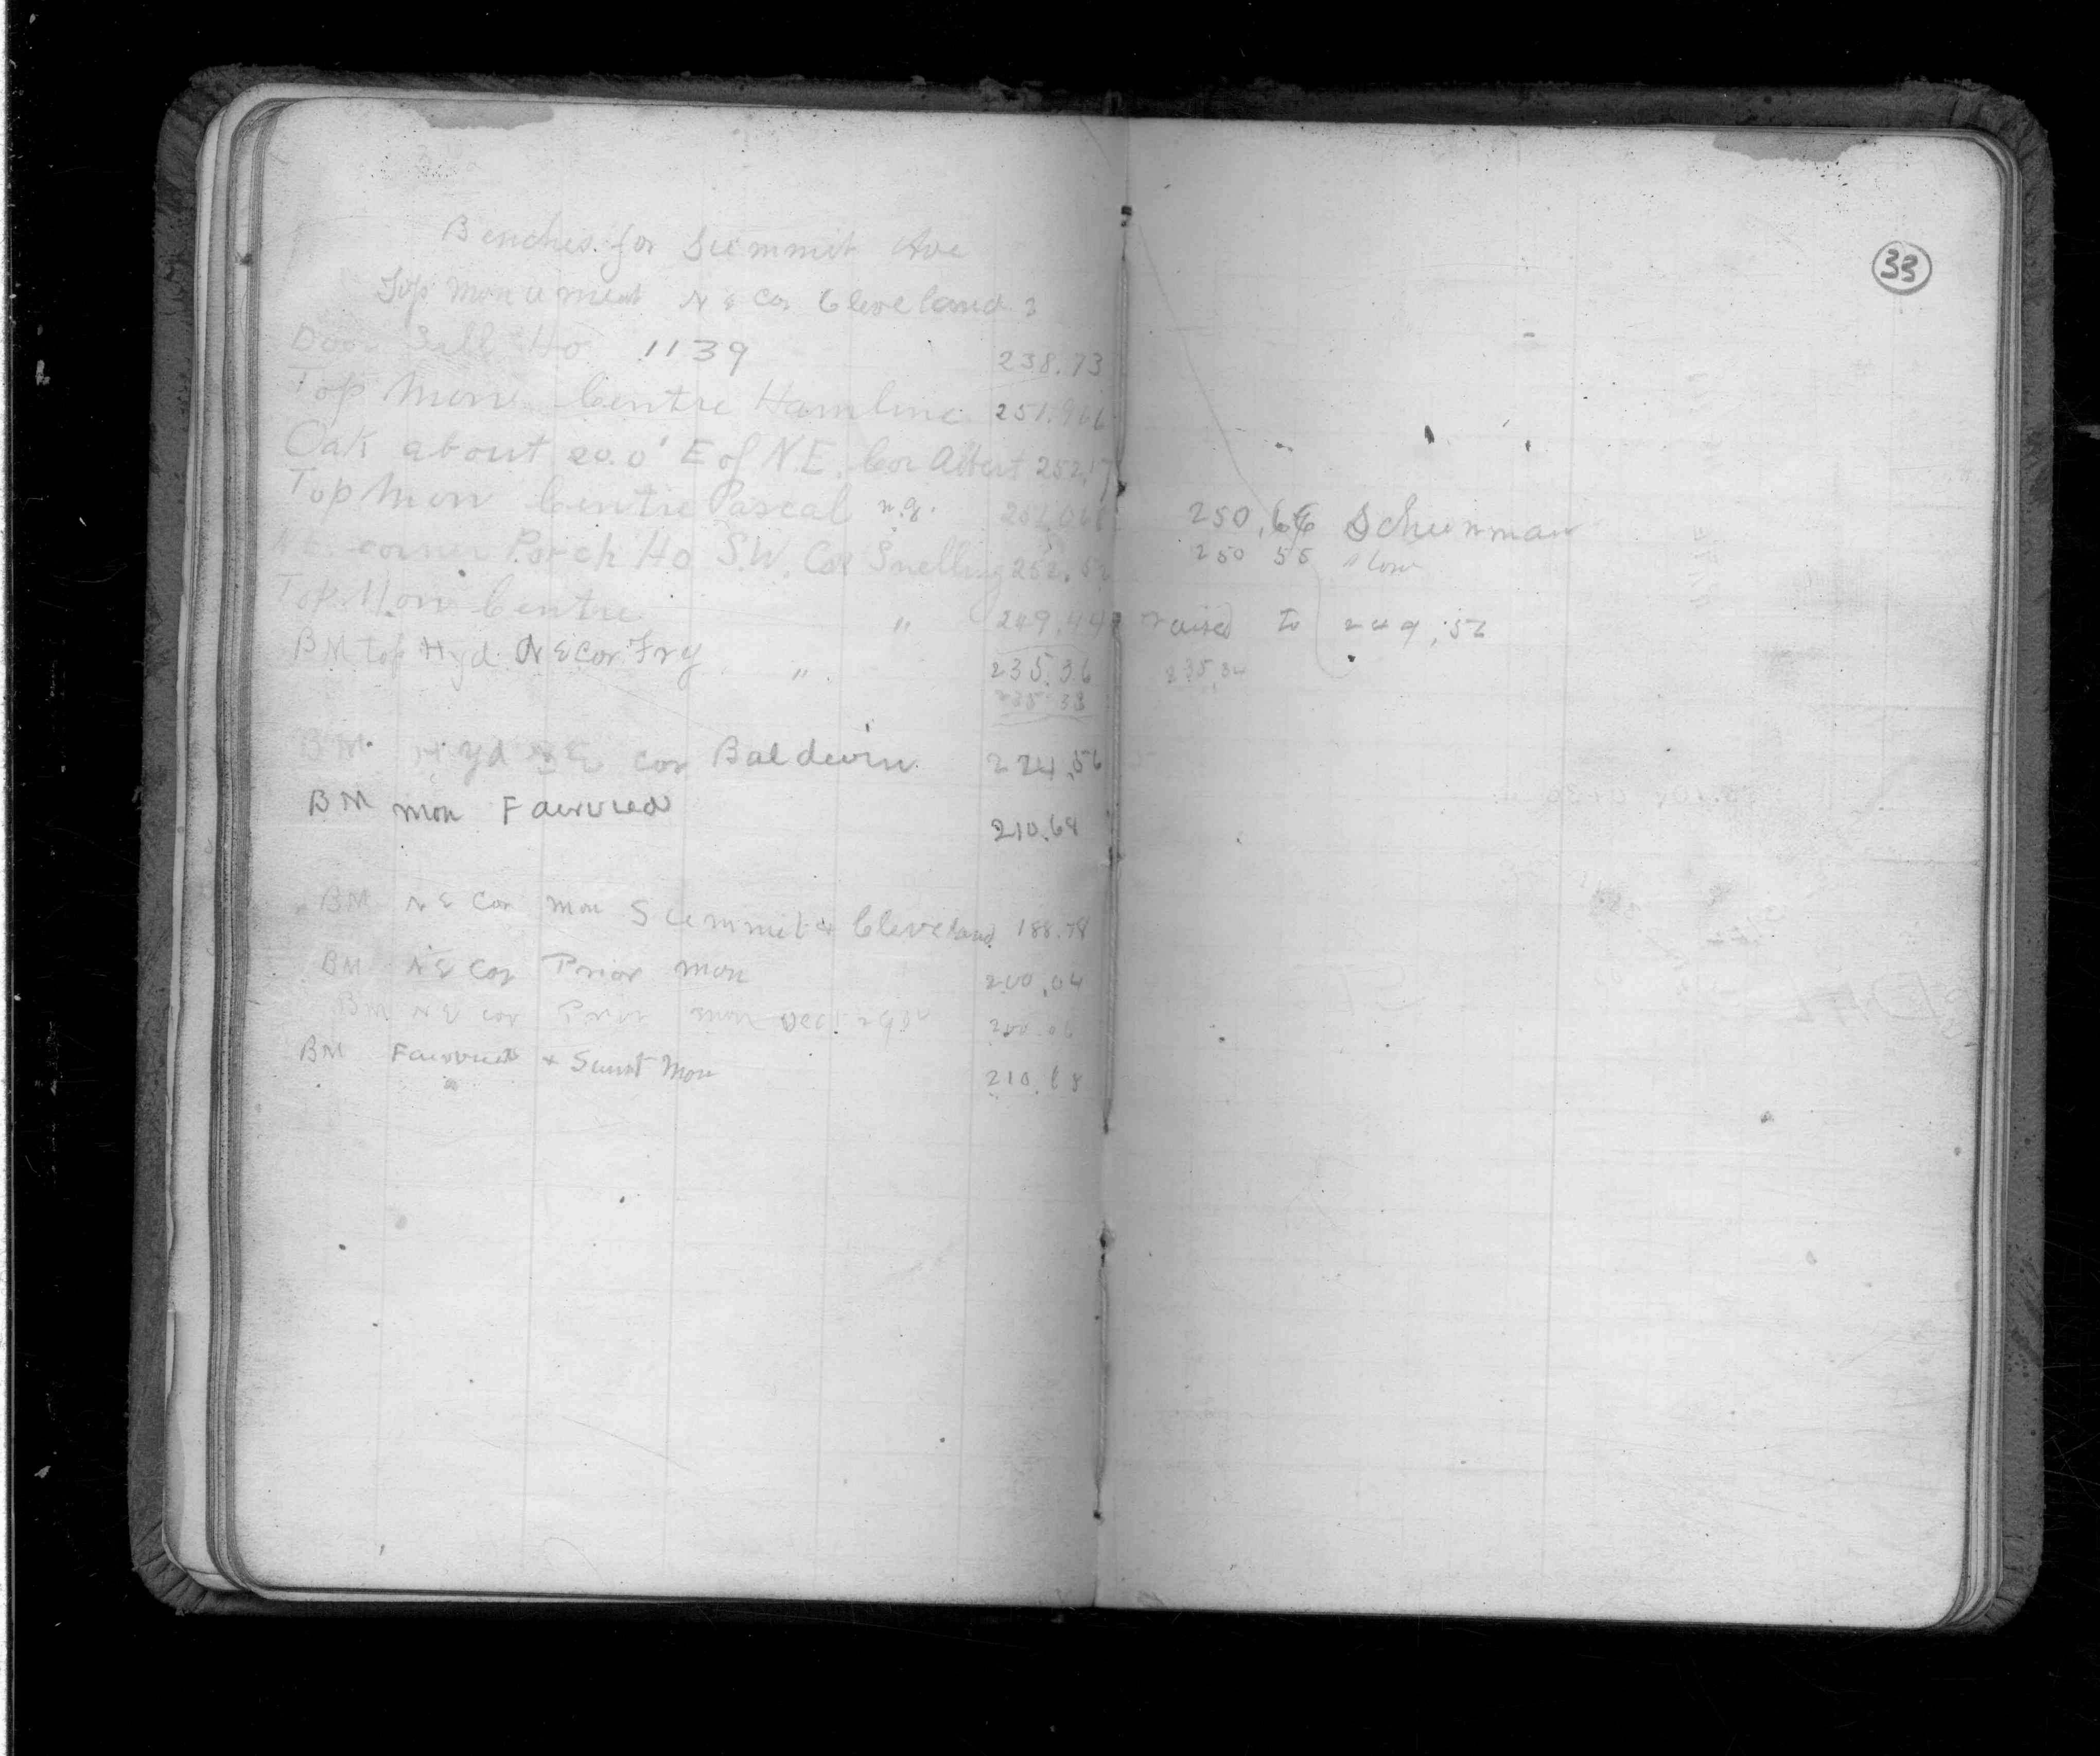 Benches for Summit Ave
Top Monument N E Cor Cleveland
Door Sill Ho 1139 238.73
Top Mon Centre Hamline 251.966
Oak about 20.0' E of N.E. Cor Albert 252.17
Top Mon Centre Pascal n.g.
N.E. corner Porch Ho S.W. Cor Snelling
Top Mon Centre " 249.44
BM top Hyd N E Cor Fry " 235.36
235.38
BM Hyd cor Baldwin 224.56
BM mon Fairview
210.68
BM N E Cor mon Summit & Cleveland 188.78
BM N E Cor Prior mon 200.04
BM N E cor Prior mon Dec
BM Fairview & Summit Mon 210.68
33
250.66 Schurman
250 55
raised to 249.52
235.34